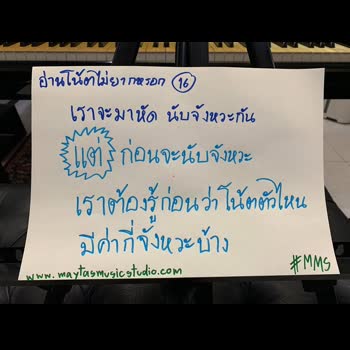 อ่านโน้ตไม่ยากหรอก 16
เราจะมาหัด นับจังหวะกัน
แต่ ก่อนจะนับจังหวะ
เราต้องรู้ก่อนว่าโน้ตตัวไหน
มีค่ากี่จังหวะบ้าง
#MMS
www.maytasmusicstudio.com